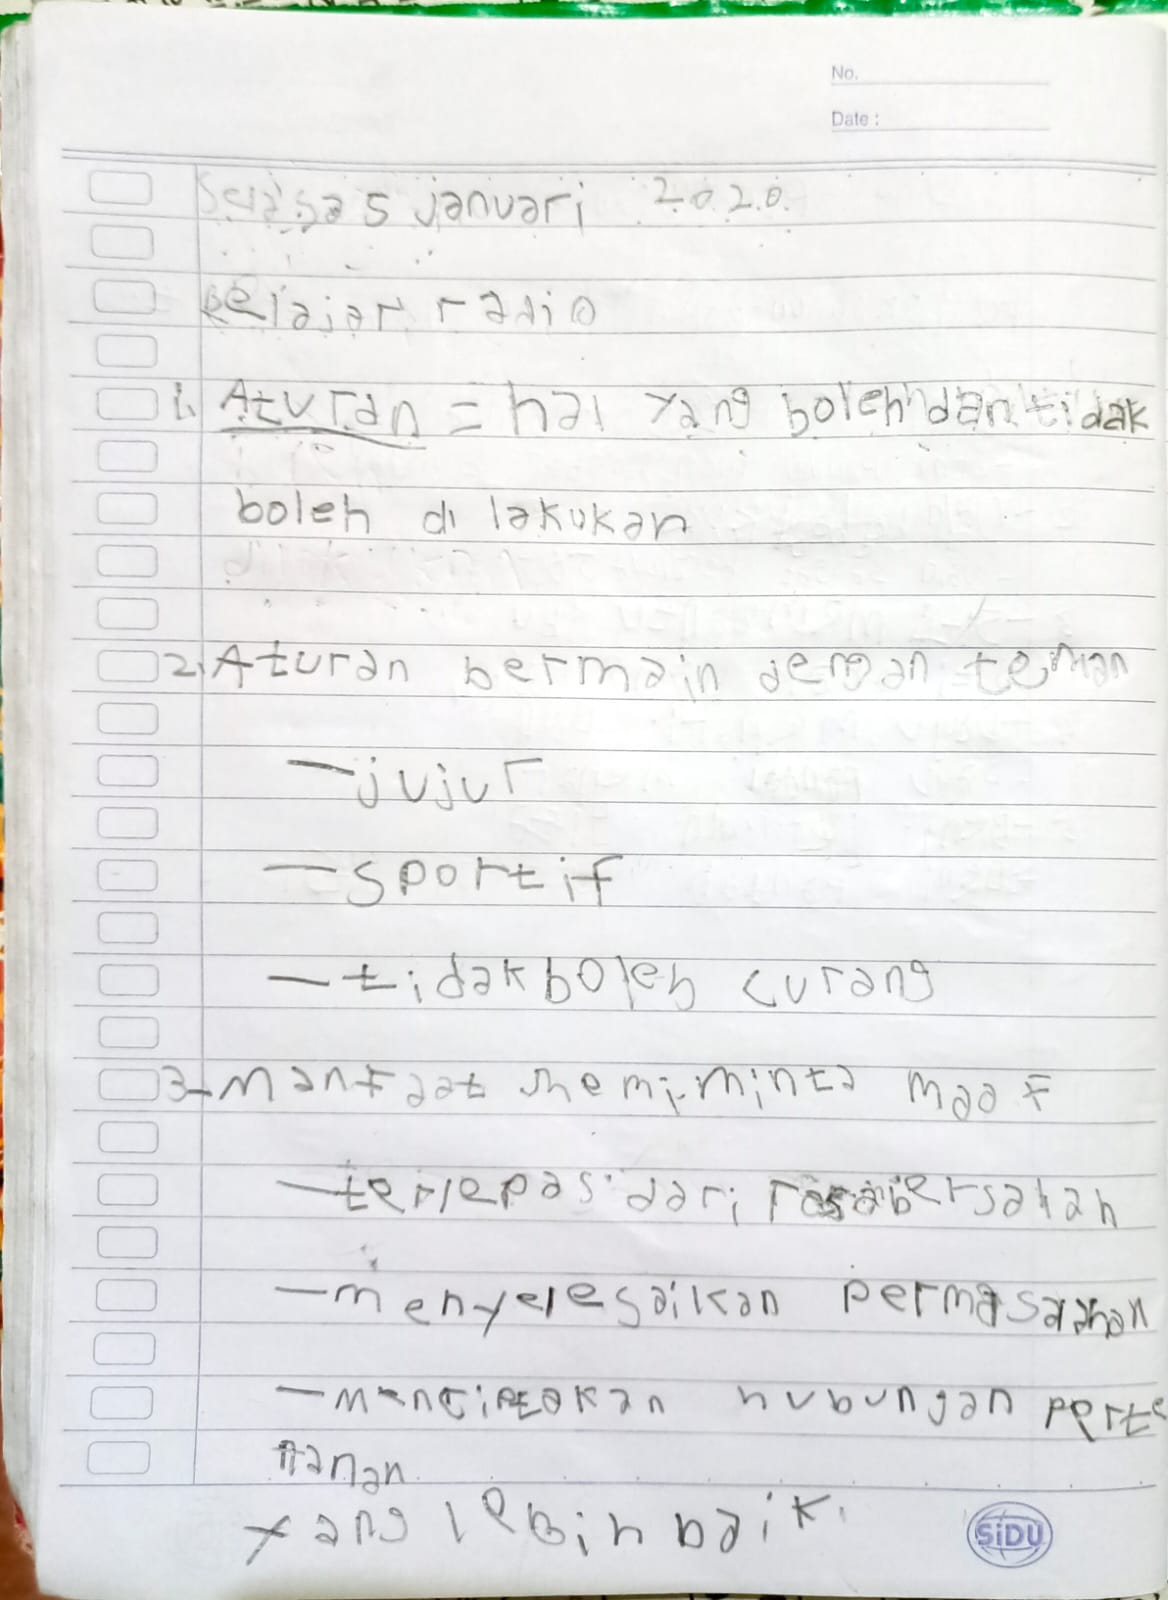 No.
Date :
Selasa 5 januari 2020.
Belajar radio
1. Aturan = hal yang boleh dan tidak
boleh di lakukan
2. Aturan bermain dengan teman
- jujur
- sportif
- tidak boleh curang
3- Manfaat memi-minta maaf
- terlepas dari rasa bersalah
- menyelesaikan permasalahan
- menciptakan hubungan perte
manan
yang lebih baik.
SiDU